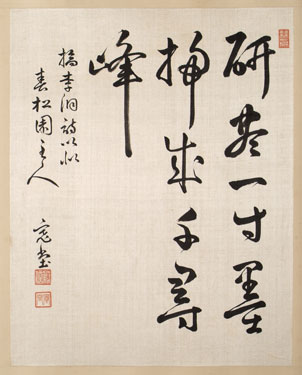 研盡一寸墨
掃成千尋
峰
摘李洞詩以似
春松園主人